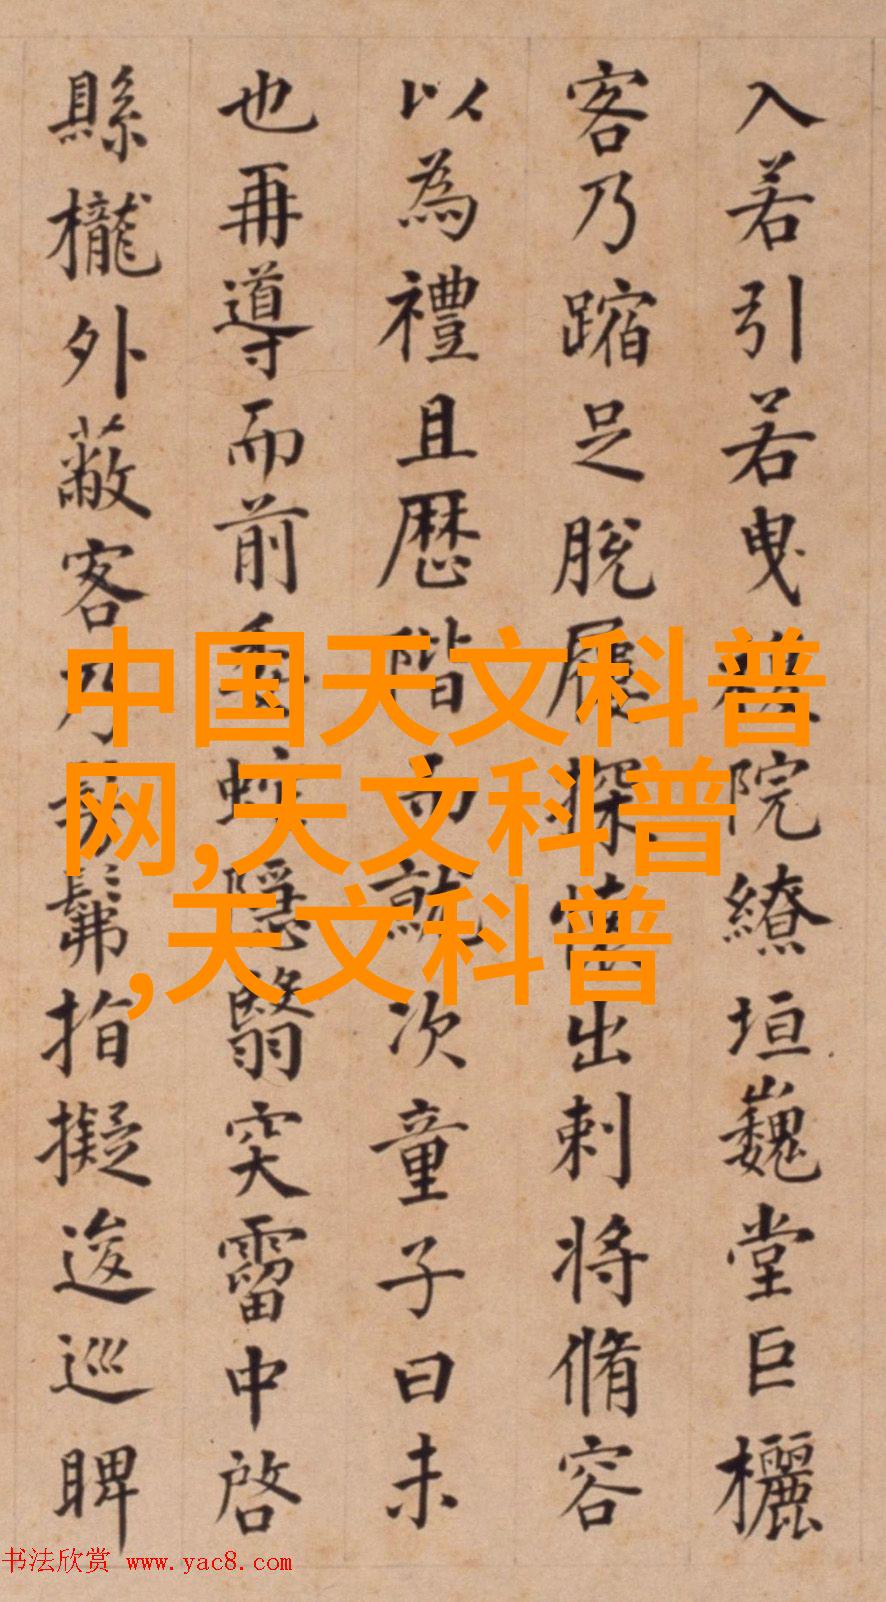 入若引若曳院繚垣巍堂巨欐
客乃蹜足脫探出刺將脩容
以為禮且歷階而就次童子曰未
也再導而前隱翳突霤中啓
縣櫳外蔽客乃髴指擬逡巡睥
中国天文科普
网,天文科普
,天文科普
书法欣赏 www.yac8.com